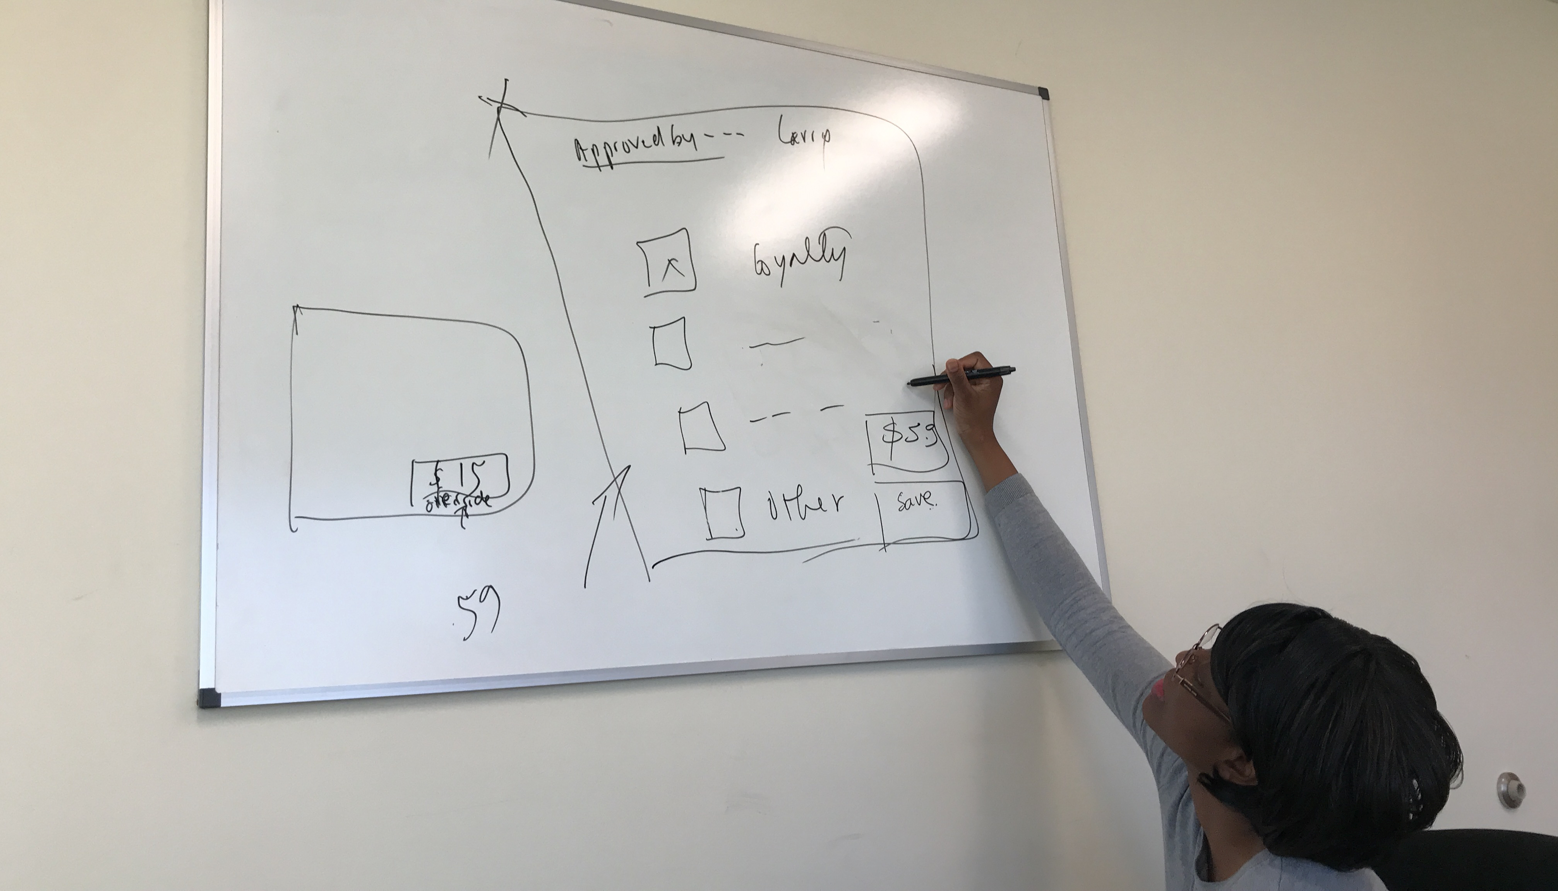 Approved by --- Larry
Loyalty
$59
Other
save.
$15
override
59